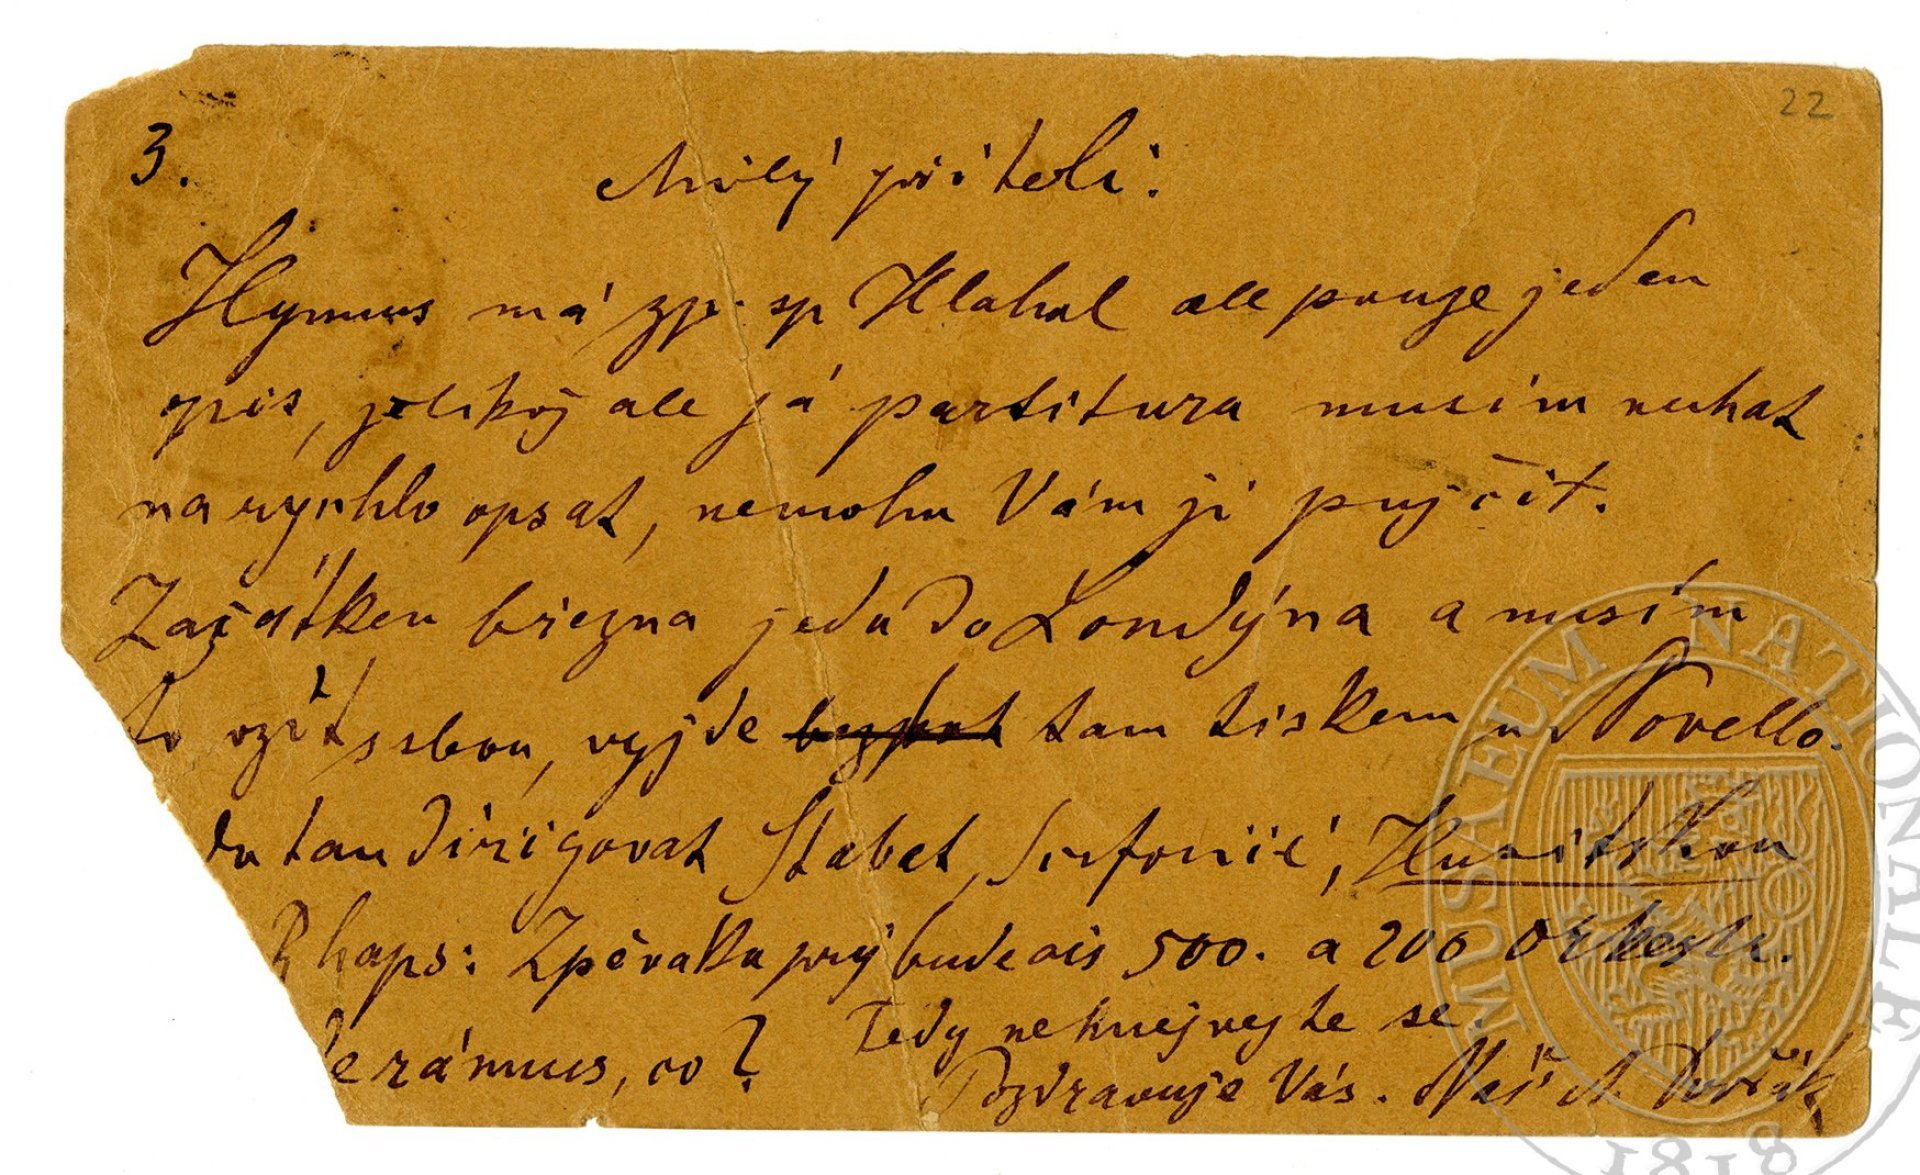 22
3.
Milý příteli:
Hymnus má zp. sp Hlahol ale pouze jeden
opis, jelikož ale já partitura musím nechat
na rychlo opsat, nemohu Vám ji pujčit.
Začátkem března jedu do Londýna a musím
to vzít s sebou, vyjde tam tiskem u Novello.
du tam dirigovat Stabat, Sinfonii, Husitskou
Rhaps: Zpěváku prý bude asi 500. a 200 Orkestr.
rámus, co? Tedy nehnejvejte se.
Pozdravuje Vás. Váš A Dvořák
MUSAEUM NATIONALE
1818